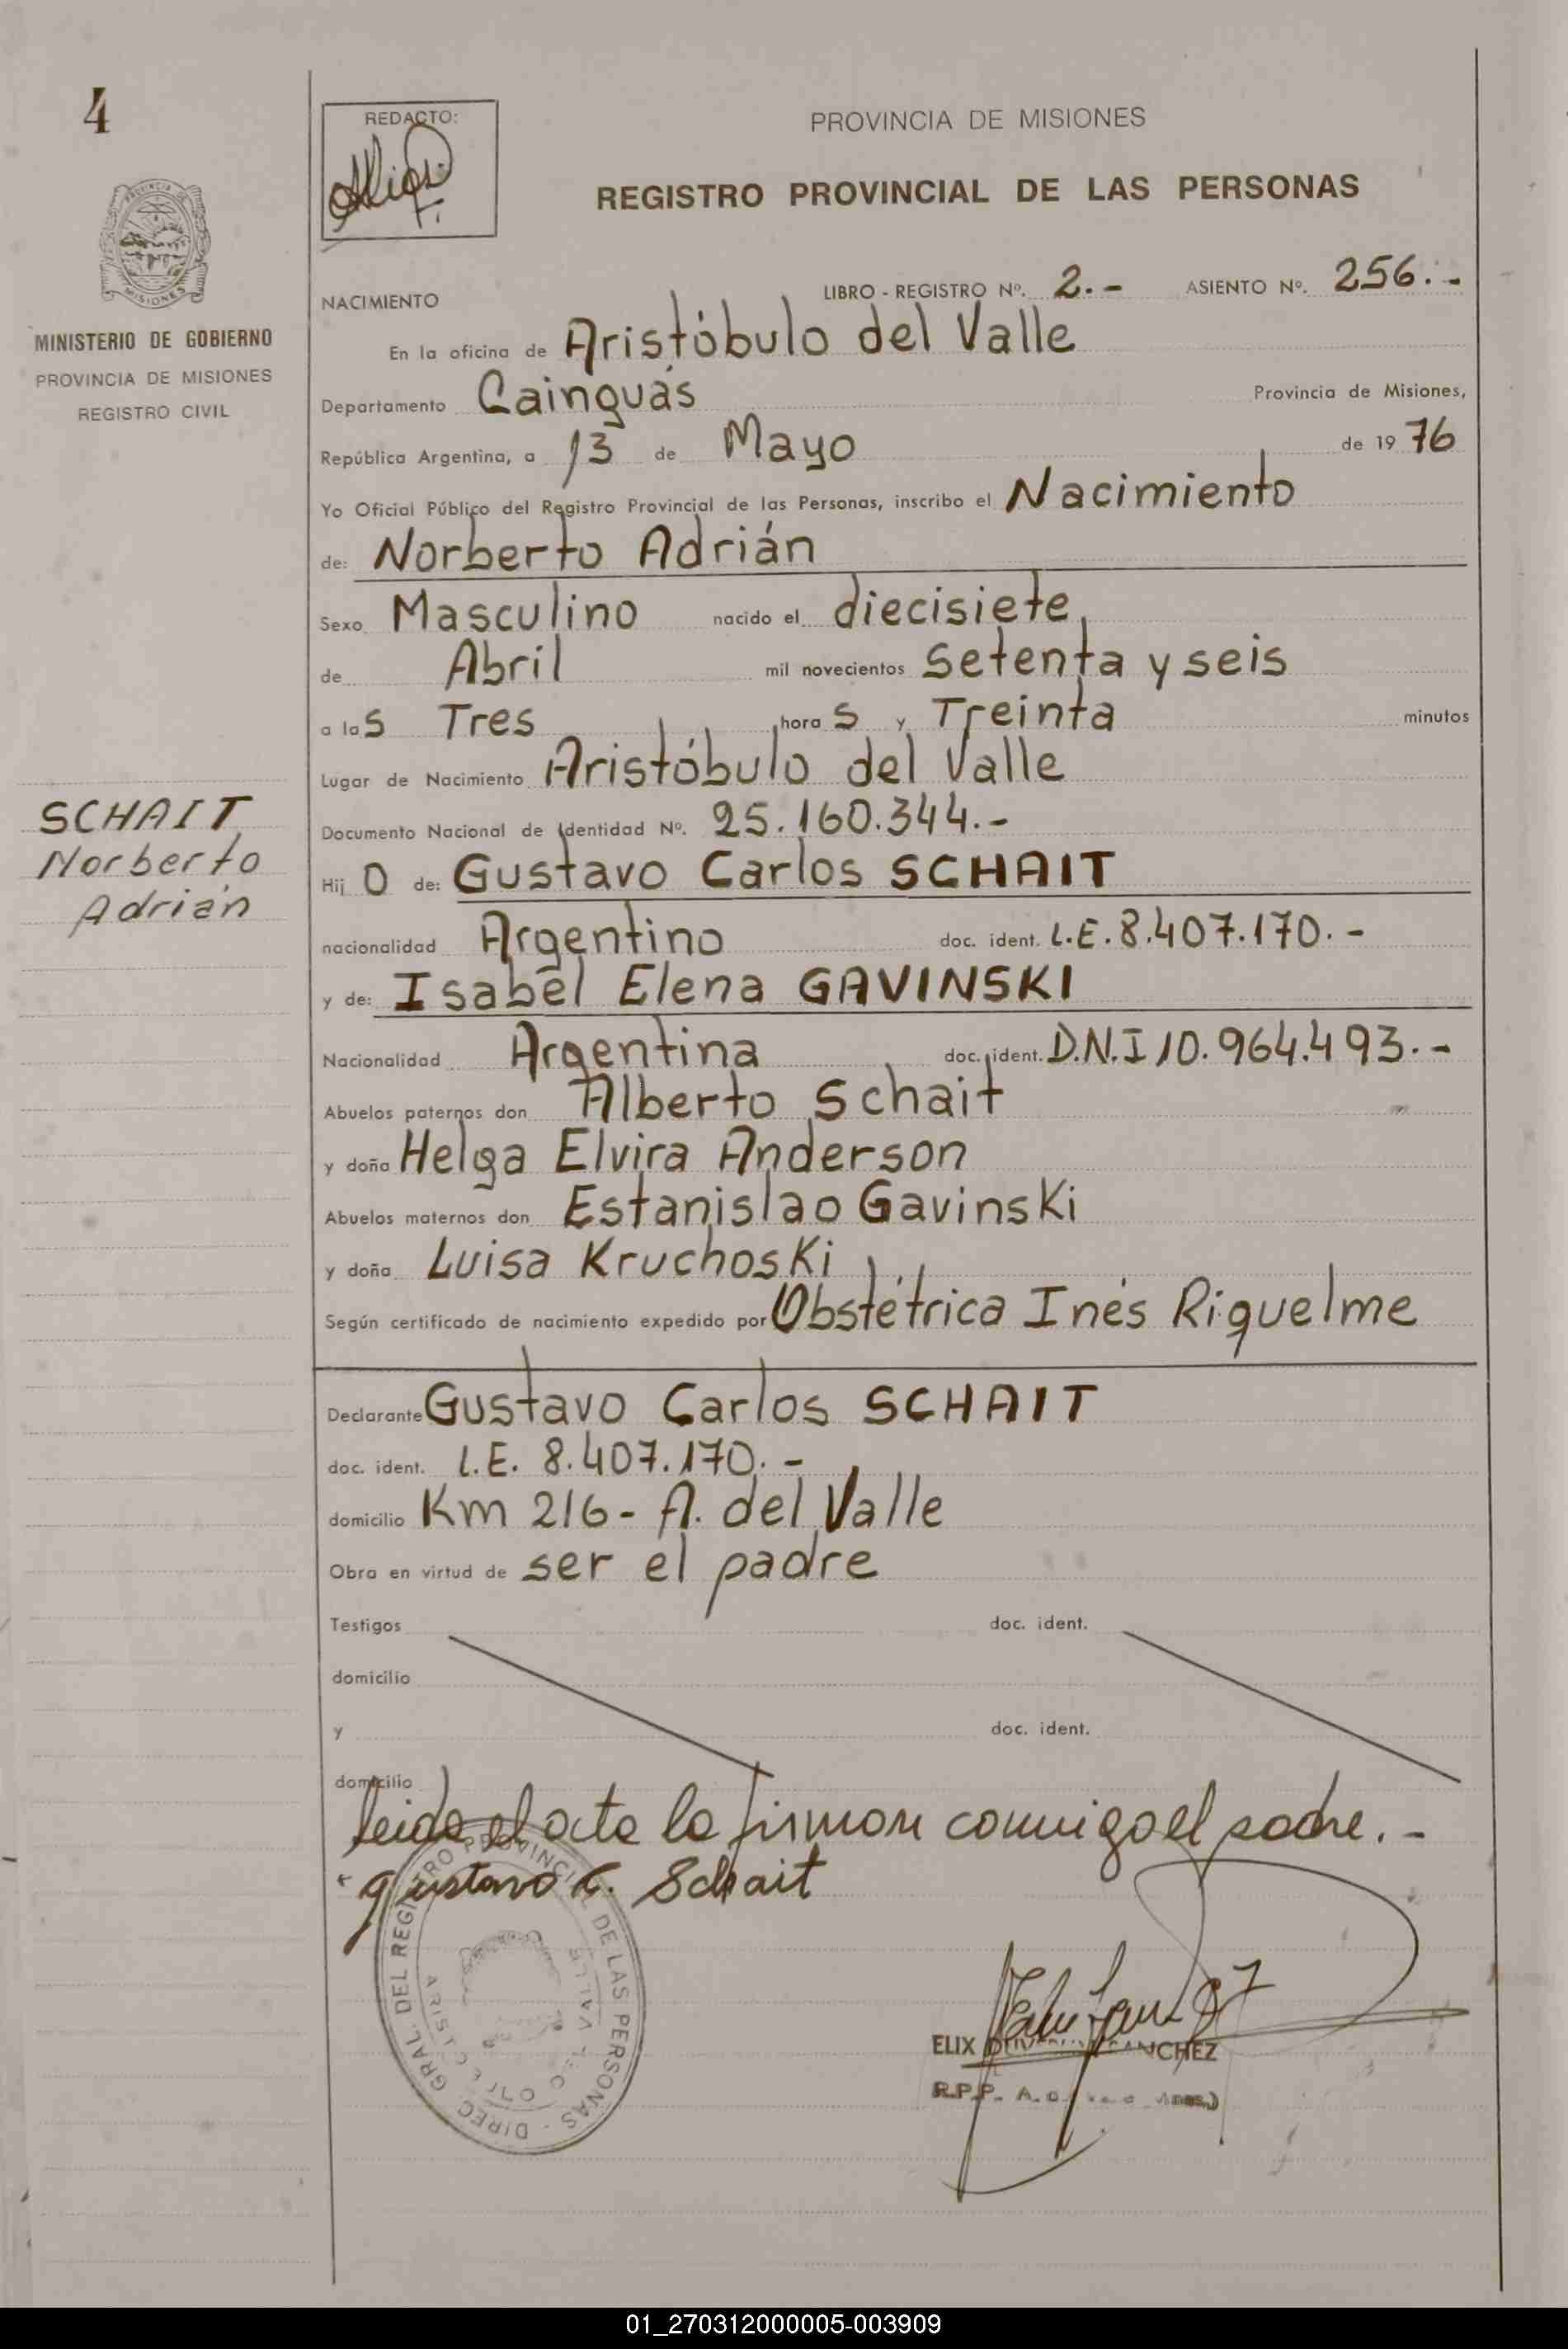 4
REDACTO:
PROVINCIA DE MISIONES
REGISTRO PROVINCIAL DE LAS PERSONAS
MISIONES
MINISTERIO DE GOBIERNO
PROVINCIA DE MISIONES
REGISTRO CIVIL
NACIMIENTO
LIBRO - REGISTRO Nº. 2.- ASIENTO Nº. 256.-
En la oficina de Aristóbulo del Valle
Departamento Cainguás Provincia de Misiones,
República Argentina, a 13 de Mayo de 19 76
Yo Oficial Público del Registro Provincial de las Personas, inscribo el Nacimiento
de: Norberto Adrián
Sexo Masculino nacido el diecisiete
de Abril mil novecientos Setenta y seis
a las Tres horas y Treinta minutos
Lugar de Nacimiento Aristóbulo del Valle
Documento Nacional de Identidad Nº. 25.160.344.-
SCHAIT
Norberto
Adrián
Hij O de: Gustavo Carlos SCHAIT
nacionalidad Argentino doc. ident. L.E. 8.407.170.-
y de: Isabel Elena GAVINSKI
Nacionalidad Argentina doc. ident. D.N.I 10.964.493.-
Abuelos paternos don Alberto Schait
y doña Helga Elvira Anderson
Abuelos maternos don Estanislao Gavinski
y doña Luisa Kruchoski
Según certificado de nacimiento expedido por Obstétrica Inés Riquelme
Declarante Gustavo Carlos SCHAIT
doc. ident. L.E. 8.407.170.-
domicilio Km 216 - A. del Valle
Obra en virtud de ser el padre
Testigos doc. ident.
domicilio
y doc. ident.
domicilio
leida el acta la firman conmigo el padre.-
Gustavo C. Schait
DIREC. GRAL. DEL REGISTRO PROVINCIAL DE LAS PERSONAS
ELIX SANCHEZ
R.P.P.
01_270312000005-003909